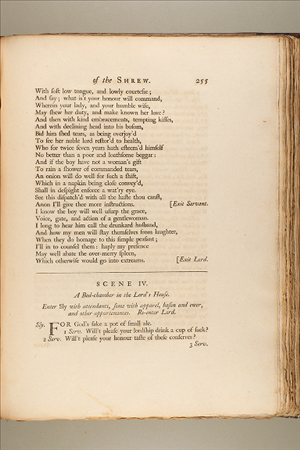 of the SHREW. 255
With soft low tongue, and lowly courtesie;
And say; what is't your honour will command,
Wherein your lady, and your humble wife,
May shew her duty, and make known her love?
And then with kind embracements, tempting kisses,
And with declining head into his bosom,
Bid him shed tears, as being overjoy'd
To see her noble lord restor'd to health,
Who for twice seven years hath esteem'd himself
No better than a poor and loathsome beggar:
And if the boy have not a woman's gift
To rain a shower of commanded tears,
An onion will do well for such a shift,
Which in a napkin being close convey'd,
Shall in despight enforce a wat'ry eye.
See this dispatch'd with all the haste thou canst,
Anon I'll give thee more instructions. [Exit Servant.
I know the boy will well usurp the grace,
Voice, gate, and action of a gentlewoman.
I long to hear him call the drunkard husband,
And how my men will stay themselves from laughter,
When they do homage to this simple peasant;
I'll in to counsel them: haply my presence
May well abate the over-merry spleen,
Which otherwise would go into extreams. [Exit Lord.
SCENE IV.
A Bed-chamber in the Lord's House.
Enter Sly with attendants, some with apparel, bason and ewer,
and other appurtenances. Re-enter Lord.
Sly. FOR God's sake a pot of small ale.
1 Serv. Will't please your lordship drink a cup of sack?
2 Serv. Will't please your honour taste of these conserves?
3 Serv.